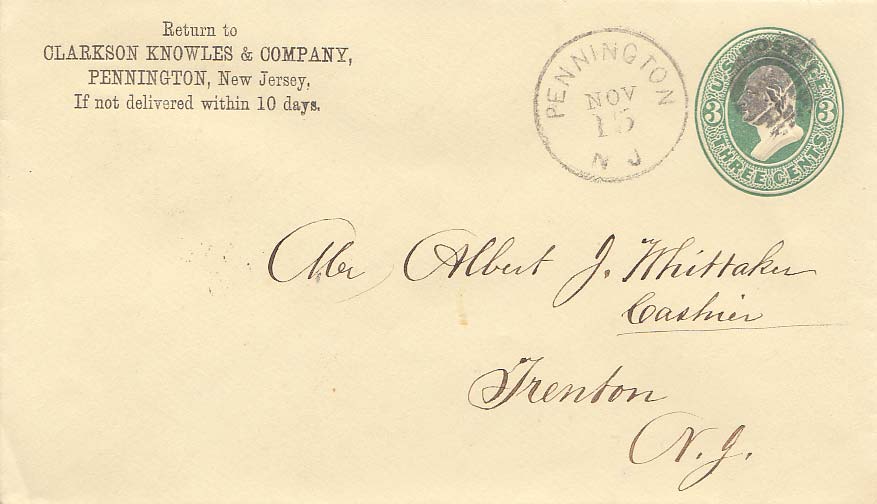 Return to
CLARKSON KNOWLES & COMPANY,
PENNINGTON, New Jersey,
If not delivered within 10 days.
PENNINGTON
NOV
15
N J
U.S. POSTAGE
3 3
THREE CENTS
Mr Albert J. Whittaker
Cashier
Trenton
N. J.